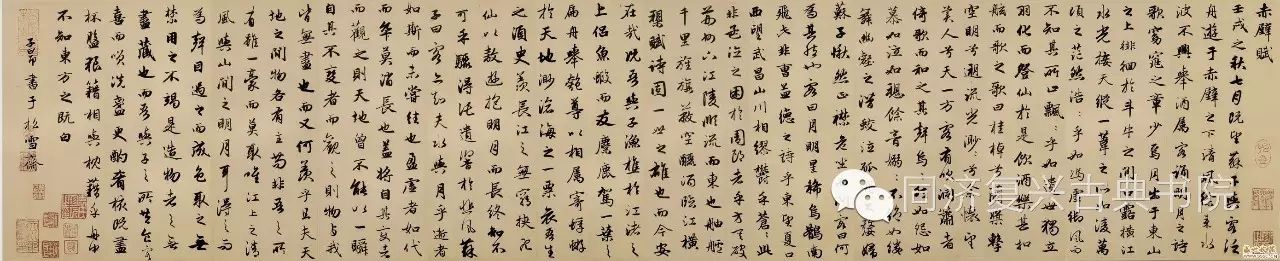 赤壁賦
壬戌之秋七月既望蘇子與客泛
舟遊于赤壁之下清風徐來水
波不興舉酒属客誦明月之詩
歌窈窕之章少焉月出于東山
之上徘徊於斗牛之間白露橫江
水光接天縱一葦之所如淩萬
頃之茫然浩浩乎如馮虛御風而
不知其所止飄飄乎如遺世獨立
羽化而登仙於是飲酒樂甚扣
舷而歌之歌曰桂棹兮蘭槳擊
空明兮溯流光渺渺兮予懷望
美人兮天一方客有吹洞簫者
倚歌而和之其聲嗚嗚然如怨如
慕如泣如愬餘音嫋嫋不絕如縷
舞幽壑之潛蛟泣孤舟之嫠婦
蘇子愀然正襟危坐而問客曰何
為其然也客曰月明星稀烏鵲南
飛此非曹孟德之詩乎東望夏口
西望武昌山川相繆鬱乎蒼蒼此
非孟德之困於周郎者乎方其破
荊州下江陵順流而東也舳艫
千里旌旗蔽空釃酒臨江橫
槊賦詩固一世之雄也而今安
在哉況吾與子漁樵於江渚之
上侶魚蝦而友麋鹿駕一葉之
扁舟舉匏尊以相屬寄蜉蝣
於天地渺滄海之一粟哀吾生
之須臾羨長江之無窮挾飛
仙以遨遊抱明月而長終知不
可乎驟得託遺響於悲風蘇
子曰客亦知夫水與月乎逝者
如斯而未嘗往也盈虛者如代
而卒莫消長也蓋將自其變者
而觀之則天地曾不能以一瞬
自其不變者而觀之則物與我
皆無盡也而又何羨乎且夫天
地之間物各有主苟非吾之所
有雖一毫而莫取惟江上之清
風與山間之明月耳得之而
為聲目遇之而成色取之無
禁用之不竭是造物者之無
盡藏也而吾與子之所共食客
喜而笑洗盞更酌肴核既盡
杯盤狼籍相與枕藉乎舟中
不知東方之既白
子昂書于松雪齋
同济复兴古典书院